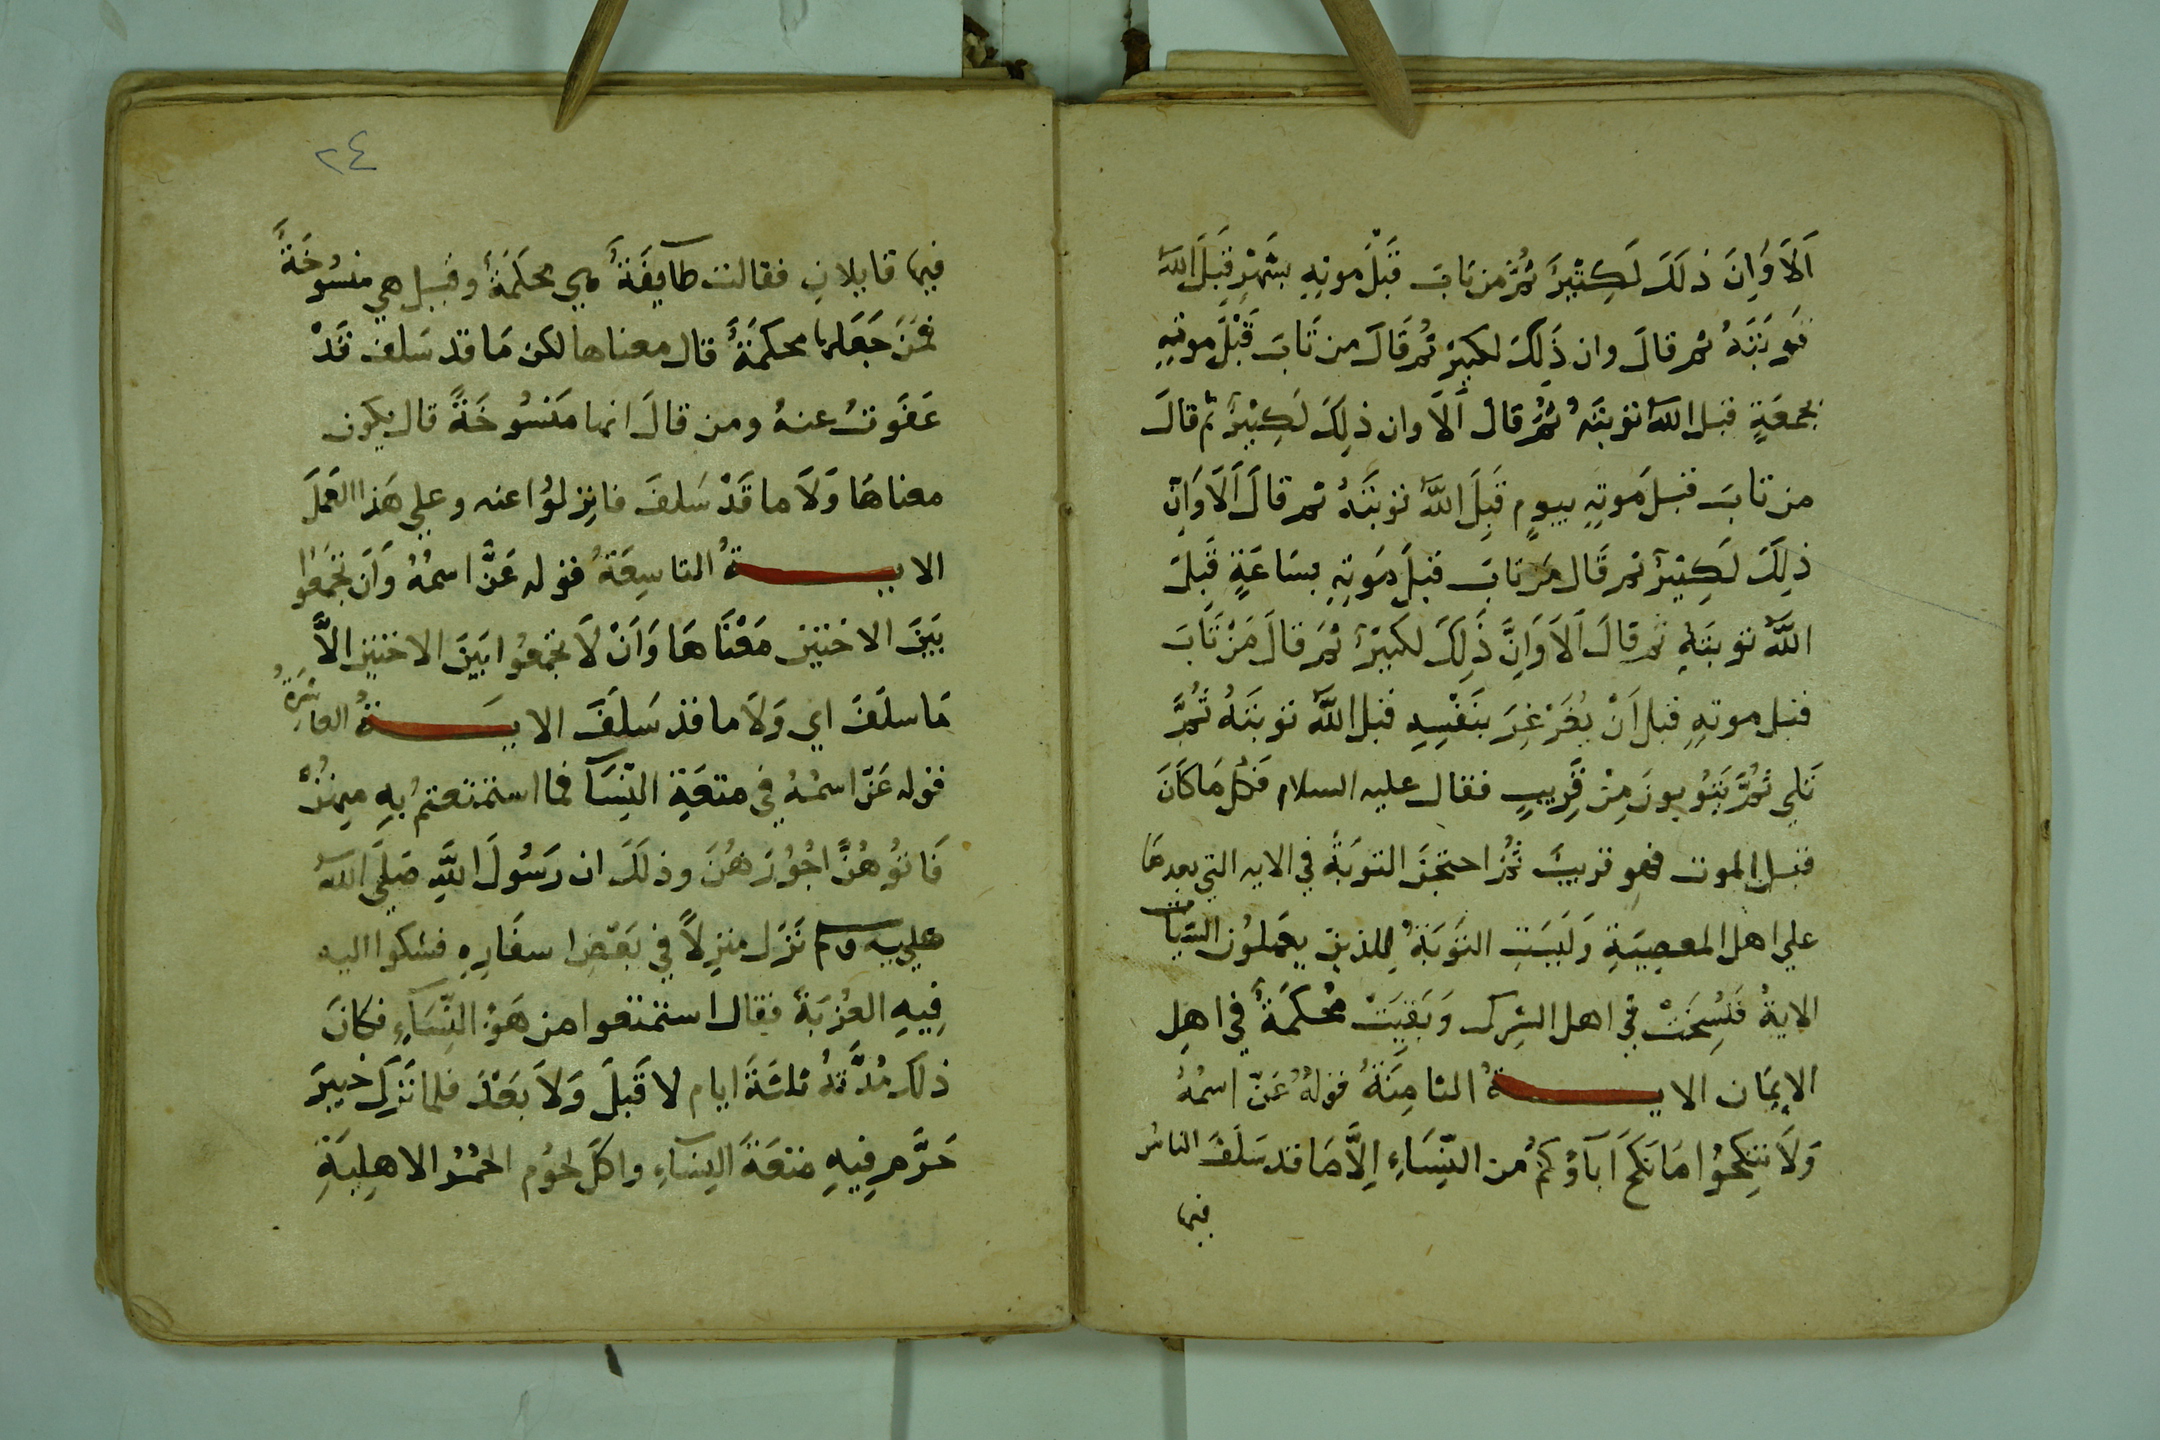 اَلَا وَاِنَ ذلَكَ لَكِثيرَ ثُمَّ من تابَ قَبْلَ موتِهِ بشَهْرٍ قَبِلَ اللهُ
تَوبَتَهُ ثم قالَ وان ذَلِكَ لكبيرٌ ثم قَالَ من تَابَ قَبْلَ موتِهِ
بجمعَةٍ قبل اللهُ توبتَهُ ثُمَّ قالَ اَلَا وان ذلِكَ لَكِثيرٌ ثم قالَ
من تابَ قبلَ مَوتِهِ بيومٍ قَبِلَ اللَّهُ توبَتَهُ ثم قالَ اَلَا وَاِنّ
ذلِكَ لَكِثيرٌ ثم قَال مَن تابَ قبلَ مَوتِهِ بسَاعَةٍ قَبِلَ
اللَّهُ توبتَهُ ثم قالَ اَلَا وَاِنَّ ذَلِكَ لكَبيرٌ ثمَ قالَ مَنْ تَابَ
قبل موتِهِ قبل اَنْ يُغَرْغِرَ بنَفْسِهِ قبل اللَّهُ توبَتَهُ ثُمَّ
تَلي ثُمَّ يَتُوبونَ مِنْ قَرِيبٍ فقال عليه السلام فَكُل مَا كَانَ
قبل الموت فهو قريبٌ ثُمَّ احتجَزَ التوبَةَ في الايه التي بعدهَا
علي اهل المعصِيَةِ وَلَيسَتِ التَوَبَةُ لِلذينَ يعمَلوُن السَيّاَت
الاية فَنُسِخَتْ في اهل الشِرك وَبَقِيَتْ مُحْكمَةً في اهِل
الاِيمَان الايـــةُ الثامِنَةُ قولهُ عَزّ اسمُهُ
وَلَا تنِكحُوُا مَا نَكحَ آبَاؤكُم من النِّسَاءِ اِلاَّ مَا قد سَلَفَ الناسُ
فيها
٢٤
فيها قايلانِ فقالت طآيفَةٌ هي محكَمَةٌ وقيل هي منسُوخَةٌ
فَمَن جَعَلها محكمَةً قال معناها لكن مَا قد سَلف قَدْ
عَفَوتُ عنهُ ومن قالَ انها مَنسُوخَةً قال يكون
معناهَا وَلَا ما قَدْ سَلفَ فانِزلوُا عنه وعلي هَذا العَمَلَ
الايـــةُ التاسِعَةُ قوله عَزَّ اسمُهُ وَاَنَ تجمَعوُا
بَيَنَ الاختينَ مَعْنَاهَا وَاَنْ لَا تجمعُوا بَينَ الاختينِ الاَّ
مَا سلَفَ اي وَلَا ما قد سَلفَ الايـــةُ العاشِرةُ
قوله عَزّ اسمُهُ في متعَةِ النِسَآ فما استمتعتُم بُهِ مِنهُنَّ
فَاتوُهُنَّ اجُوُرَهُنَ وذلَكَ ان رَسُولَ اللَّهِ صَلَي اللهُ
عليه وم نَزَل منزِلاً في بَعْضِ اسفَارِهِ فشكوا اليه
فِيهِ العُزبَةَ فقال استمتعوا من هَؤُ النِسَآءِ فكانَ
ذلكَ مُدَّتهُ ثلثَةَ ايام لا قَبلَ وَلاَ بَعْدَ فلما نَزَل خيبَرَ
حَرَّمَ فِيهِ متعَةَ النِسَآءِ واكلَ لحوُم الحمُرُ الاهِليَةِ